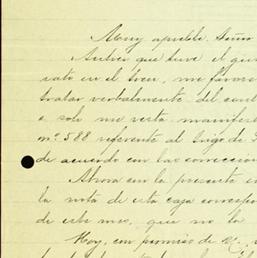 Muy apreble. Señor
Antes que tuve el gus
rato en el tren, me favore
tratar verbalmente del cont
e solo me resta manifes
nº 588 referente al trigo de
de acuerdo con las correccion
Ahora con la presente
la nota de esta casa correspo
de este mes, que no la
Hoy, con permiso de V.